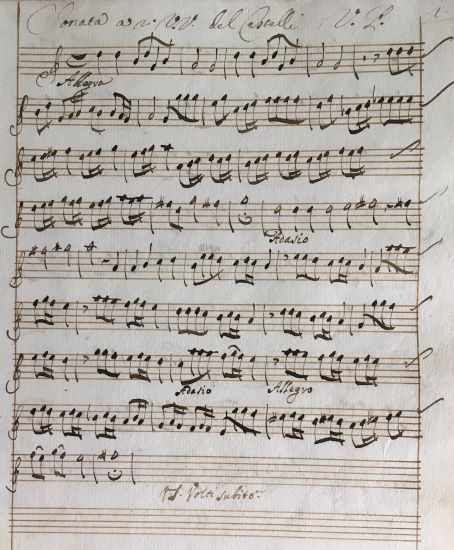 Sonata a 2: V.V. del Castelli V.º 2.º
Allegro
Adasio
allegro
Adasio Allegro
V.S. Volti subito